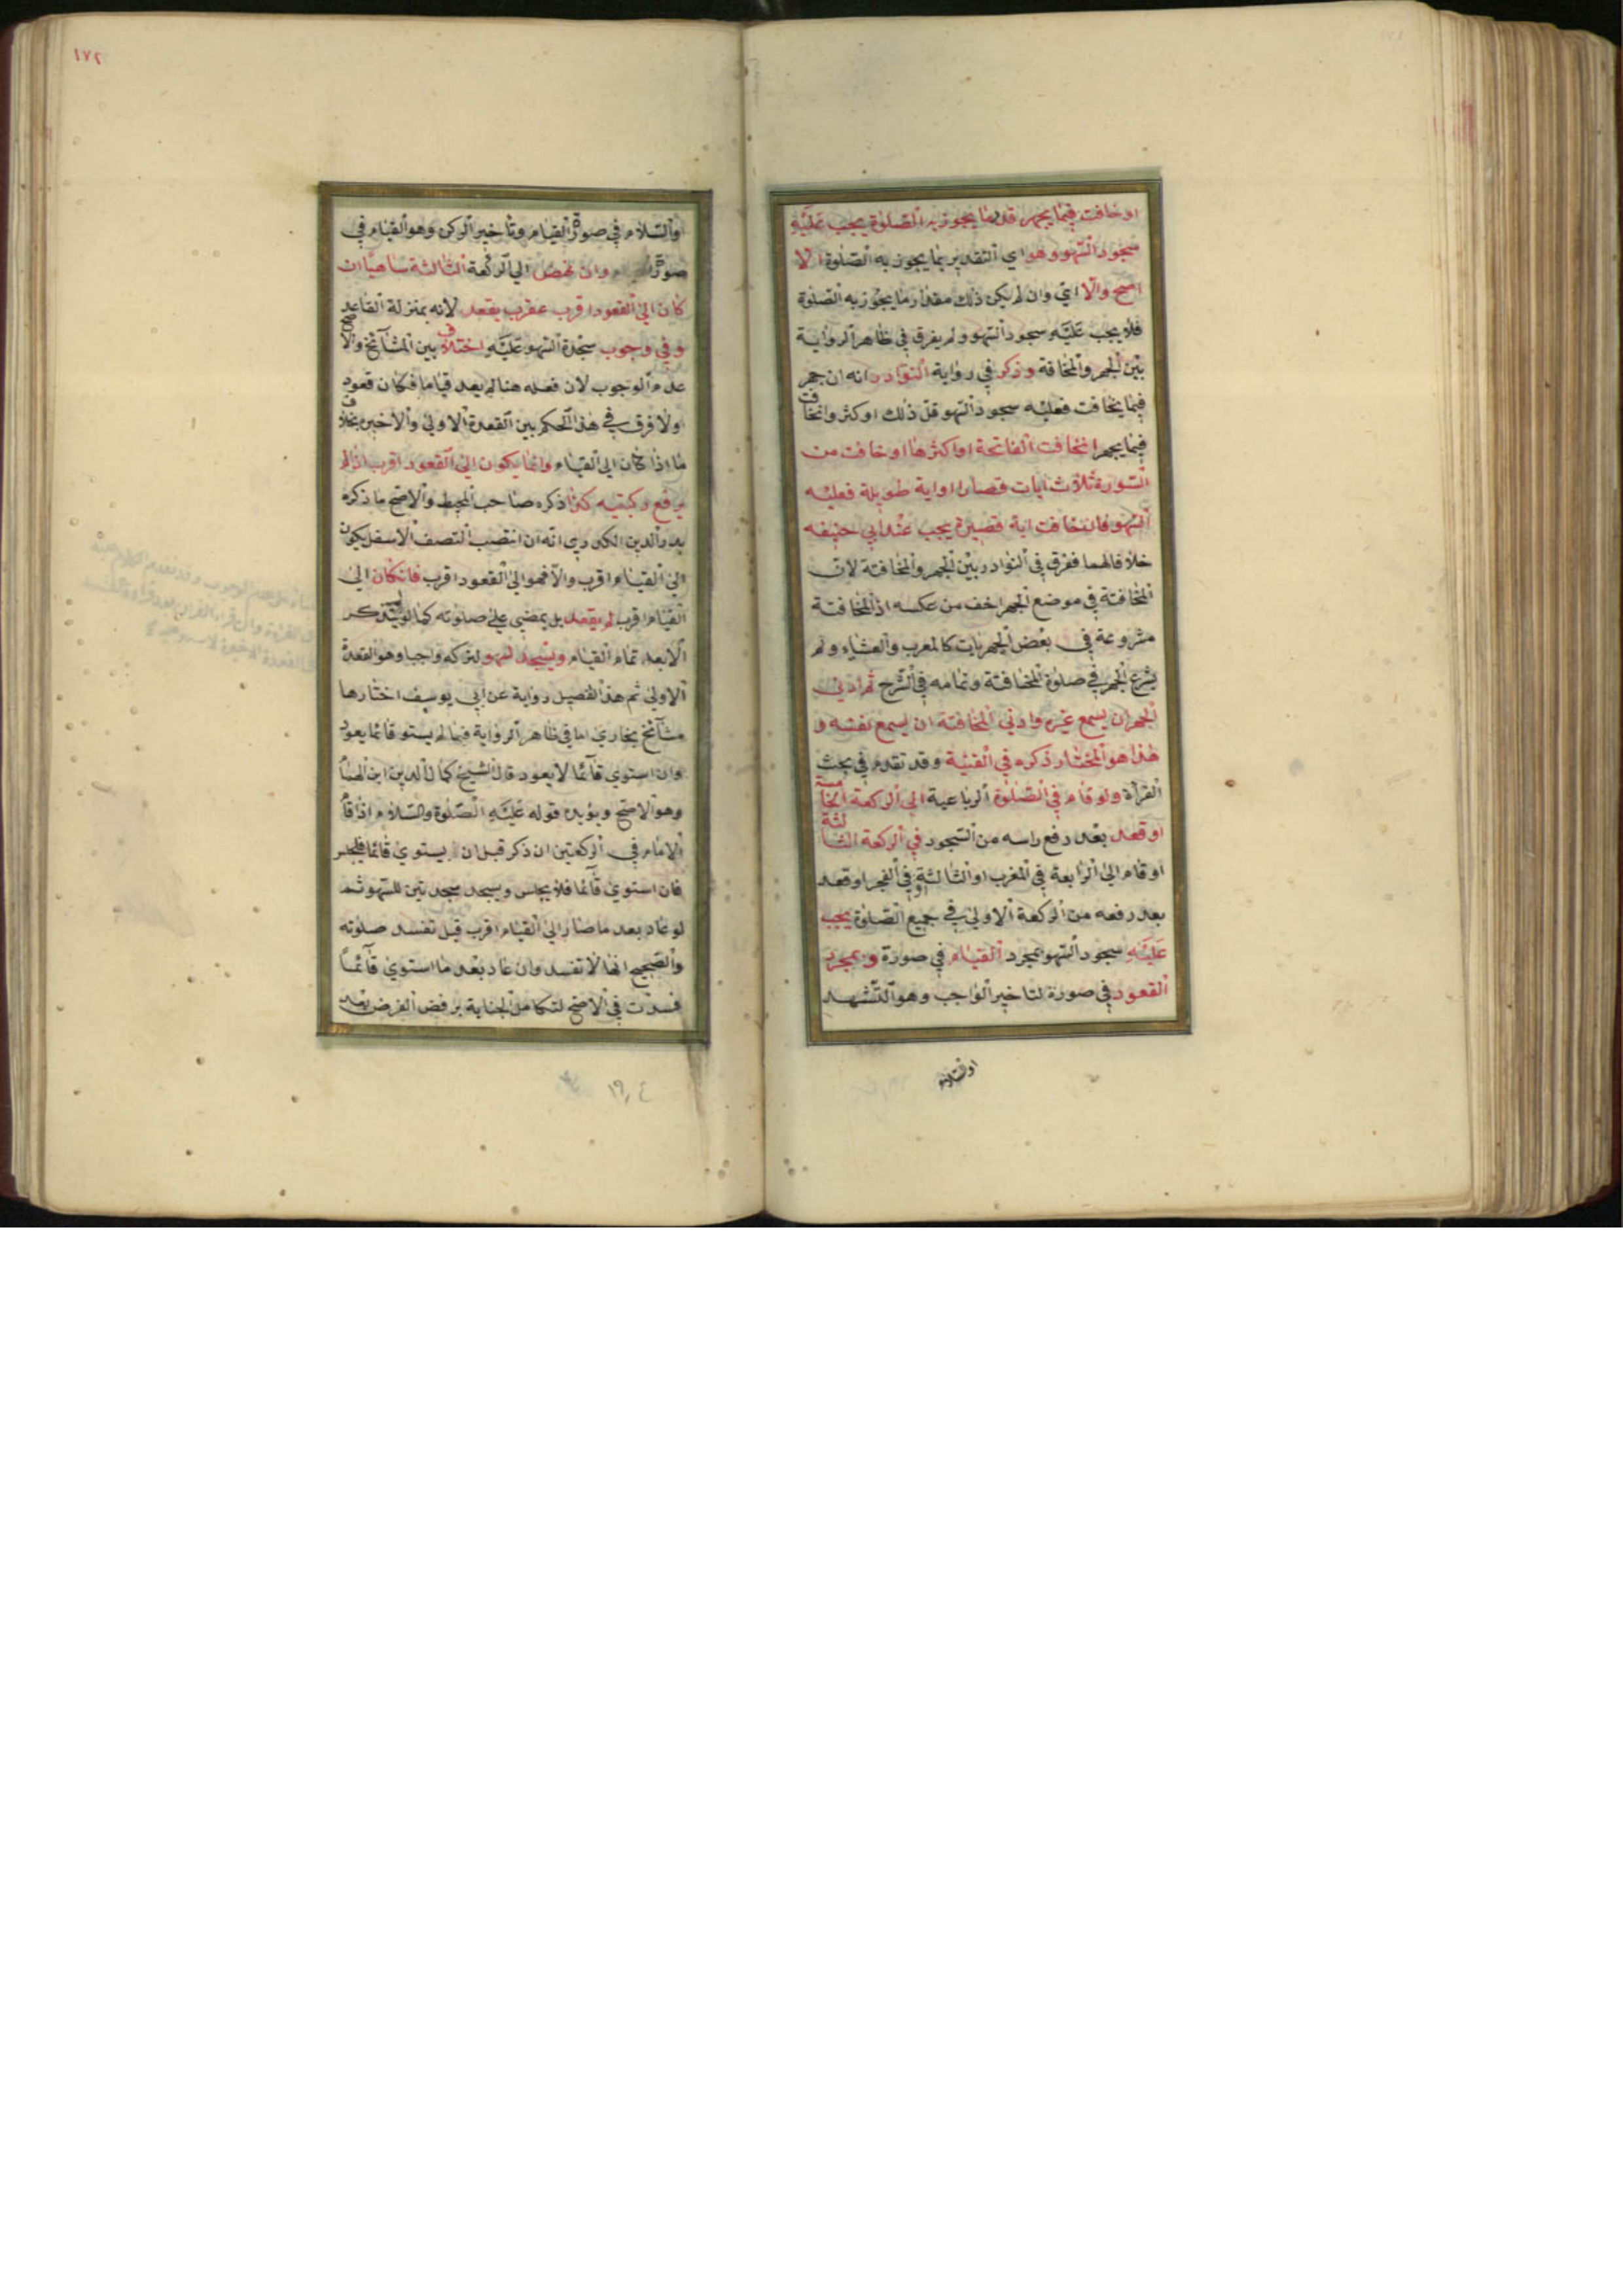 او خافت فيما يجهر قدر ما يجوز به الصلوة يجب عليه
سجود السهو وهو اي التقدير بما يجوز به الصلوة الا
اصح والا اي وان لم يكن ذلك مقدار ما يجوز به الصلوة
فلا يجب عليه سجود السهو ولم يفرق في ظاهر الرواية
بين الجهر والمخافة وذكر في رواية النوادر انه ان جهر
فيما يخافت فعليه سجود السهو قل ذلك او كثر وانخافت
فيما يجهر انخافت الفاتحة او اكثرها او خافت من
السورة ثلاث ايات قصار او اية طويلة فعليه
السهو فان خافت اية قصيرة يجب عند ابي حنيفه
خلافا لهما ففرق في النوادر بين الجهر والمخافتة لان
المخافتة في موضع الجهر اخف من عكسه اذ المخافتة
مشروعة في بعض الجهريات كالمغرب والعشاء ولم
يشرع الجهر في صلوة المخافتة وتمامه في الشرح ثم ادنى
الجهر ان يسمع غيره وادني المخافتة ان يسمع نفسه و
هذا هو المختار ذكره في القنية وقد تقدم في بحث
القرآة ولو قام في الصلوة الرباعية الي الركعة الخامسة
او قعد بعد رفع راسه من السجود في الركعة الثالثة
او قام الى الرابعة في المغرب او الثالثة في الفجر او قعد
بعد رفعه من الركعة الاولى في جميع الصلوة يجب
عليه سجود السهو بمجرد القيام في صورة و بمجرد
القعود في صورة لتاخير الواجب وهو التشهد
١٧٢
والسلام في صورة القيام وتاخير الركن وهو القيام في
صورة وان نهض الي الركعة الثالثة ساهيا ان
كان الى القعود اقرب يقعد لانه بمنزلة القاعد
وفي وجوب سجدة السهو عليه اختلاف بين المشآئخ والاصح
عدم الوجوب لان فعله هنا لم يعد قياما فكان قعود
ولا فرق في هذا الحكم بين القعدة الاولى والاخيرة بخلاف
ما اذا كان الي القيام وانما يكون الى القعود اقرب اذا لم
يرفع ركبتيه كذا ذكره صاحب المحيط والاصح ما ذكره
بدر الدين الكردري انه ان انتصب النصف الاسفل يكون
الى القيام اقرب والا فهو الى القعود اقرب فانكان الى
القيام اقرب لم يقعد بل يمضي على صلوته كما لو لم يتذكر
الا بعد تمام القيام ويسجد لسهو لتركه واجبا وهو القعدة
الاولى ثم هذا التفصيل رواية عن ابي يوسف اختارها
مشآئخ بخاري اما في ظاهر الرواية فما لم يستو قائما يعود
وان استوي قآئما لا يعود قال الشيخ كمال الدين ابن الهمام
وهو الاصح ويؤيده قوله عليه الصلوة والسلام اذا قام
الامام في الركعتين ان ذكر قبل ان يستوي قائما فليجلس
فان استوي قآئما فلا يجلس ويسجد سجدتين للسهو ثم
لو عاد بعد ما صار الى القيام اقرب قيل تفسد صلوته
والصحيح انها لا تفسد وان عاد بعد ما استوي قآئما
فسدت في الاصح لتكامل الجناية برفض الفرض بعد